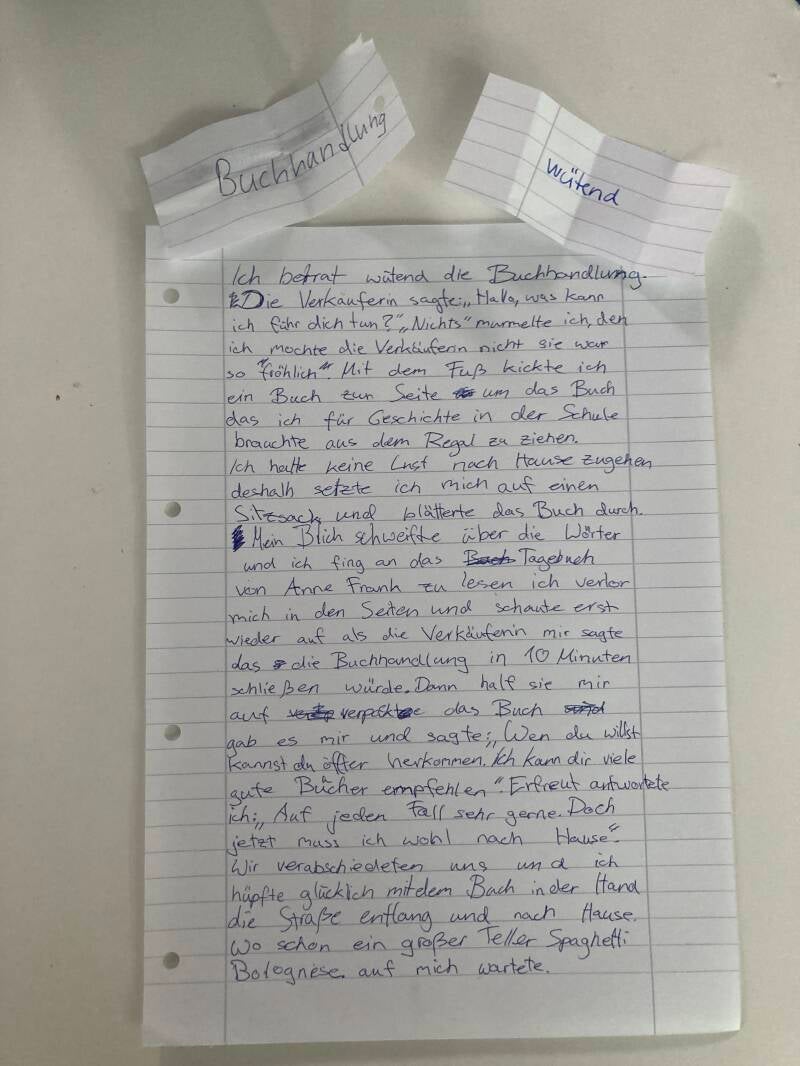 Buchhandlung
wütend
Ich betrat wütend die Buchhandlung.
Die Verkäuferin sagte: „Hallo, was kann
ich führ dich tun?" „Nichts" murmelte ich, den
ich mochte die Verkäuferin nicht sie war
so "fröhlich". Mit dem Fuß kickte ich
ein Buch zur Seite um das Buch
das ich für Geschichte in der Schule
brauchte aus dem Regal zu ziehen.
Ich hatte keine Lust nach Hause zugehen
deshalb setzte ich mich auf einen
Sitzsack und blätterte das Buch durch.
Mein Blick schweifte über die Wörter
und ich fing an das Tagebuch
von Anne Frank zu lesen ich verlor
mich in den Seiten und schaute erst
wieder auf als die Verkäuferin mir sagte
das die Buchhandlung in 10 Minuten
schließen würde. Dann half sie mir
auf verpakte das Buch
gab es mir und sagte: „Wen du willst
kannst du öfter herkommen. Ich kann dir viele
gute Bücher empfehlen". Erfreut antwortete
ich: „Auf jeden Fall sehr gerne. Doch
jetzt muss ich wohl nach Hause".
Wir verabschiedeten uns und ich
hüpfte glücklich mit dem Buch in der Hand
die Straße entlang und nach Hause.
Wo schon ein großer Teller Spaghetti
Bolognese. auf mich wartete.